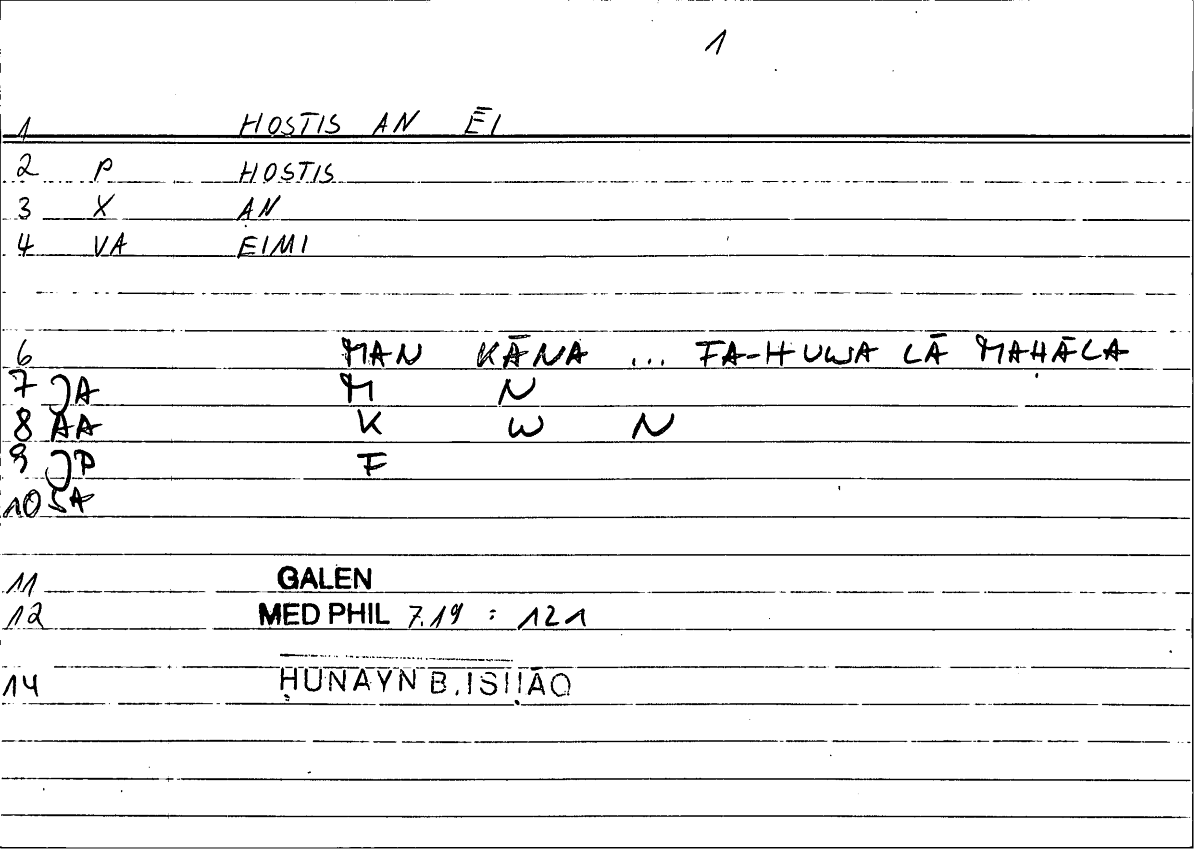 1
1 HOSTIS AN ĒI
2 P HOSTIS
3 X AN
4 VA EIMI
6 MAN KĀNA ... FA-HUWA LĀ MAḤĀLA
7 JA M N
8 AA K W N
9 JP F
10 SA
11 GALEN
12 MED PHIL 7.19 : 121
14 ḤUNAYN B. ISḤĀQ